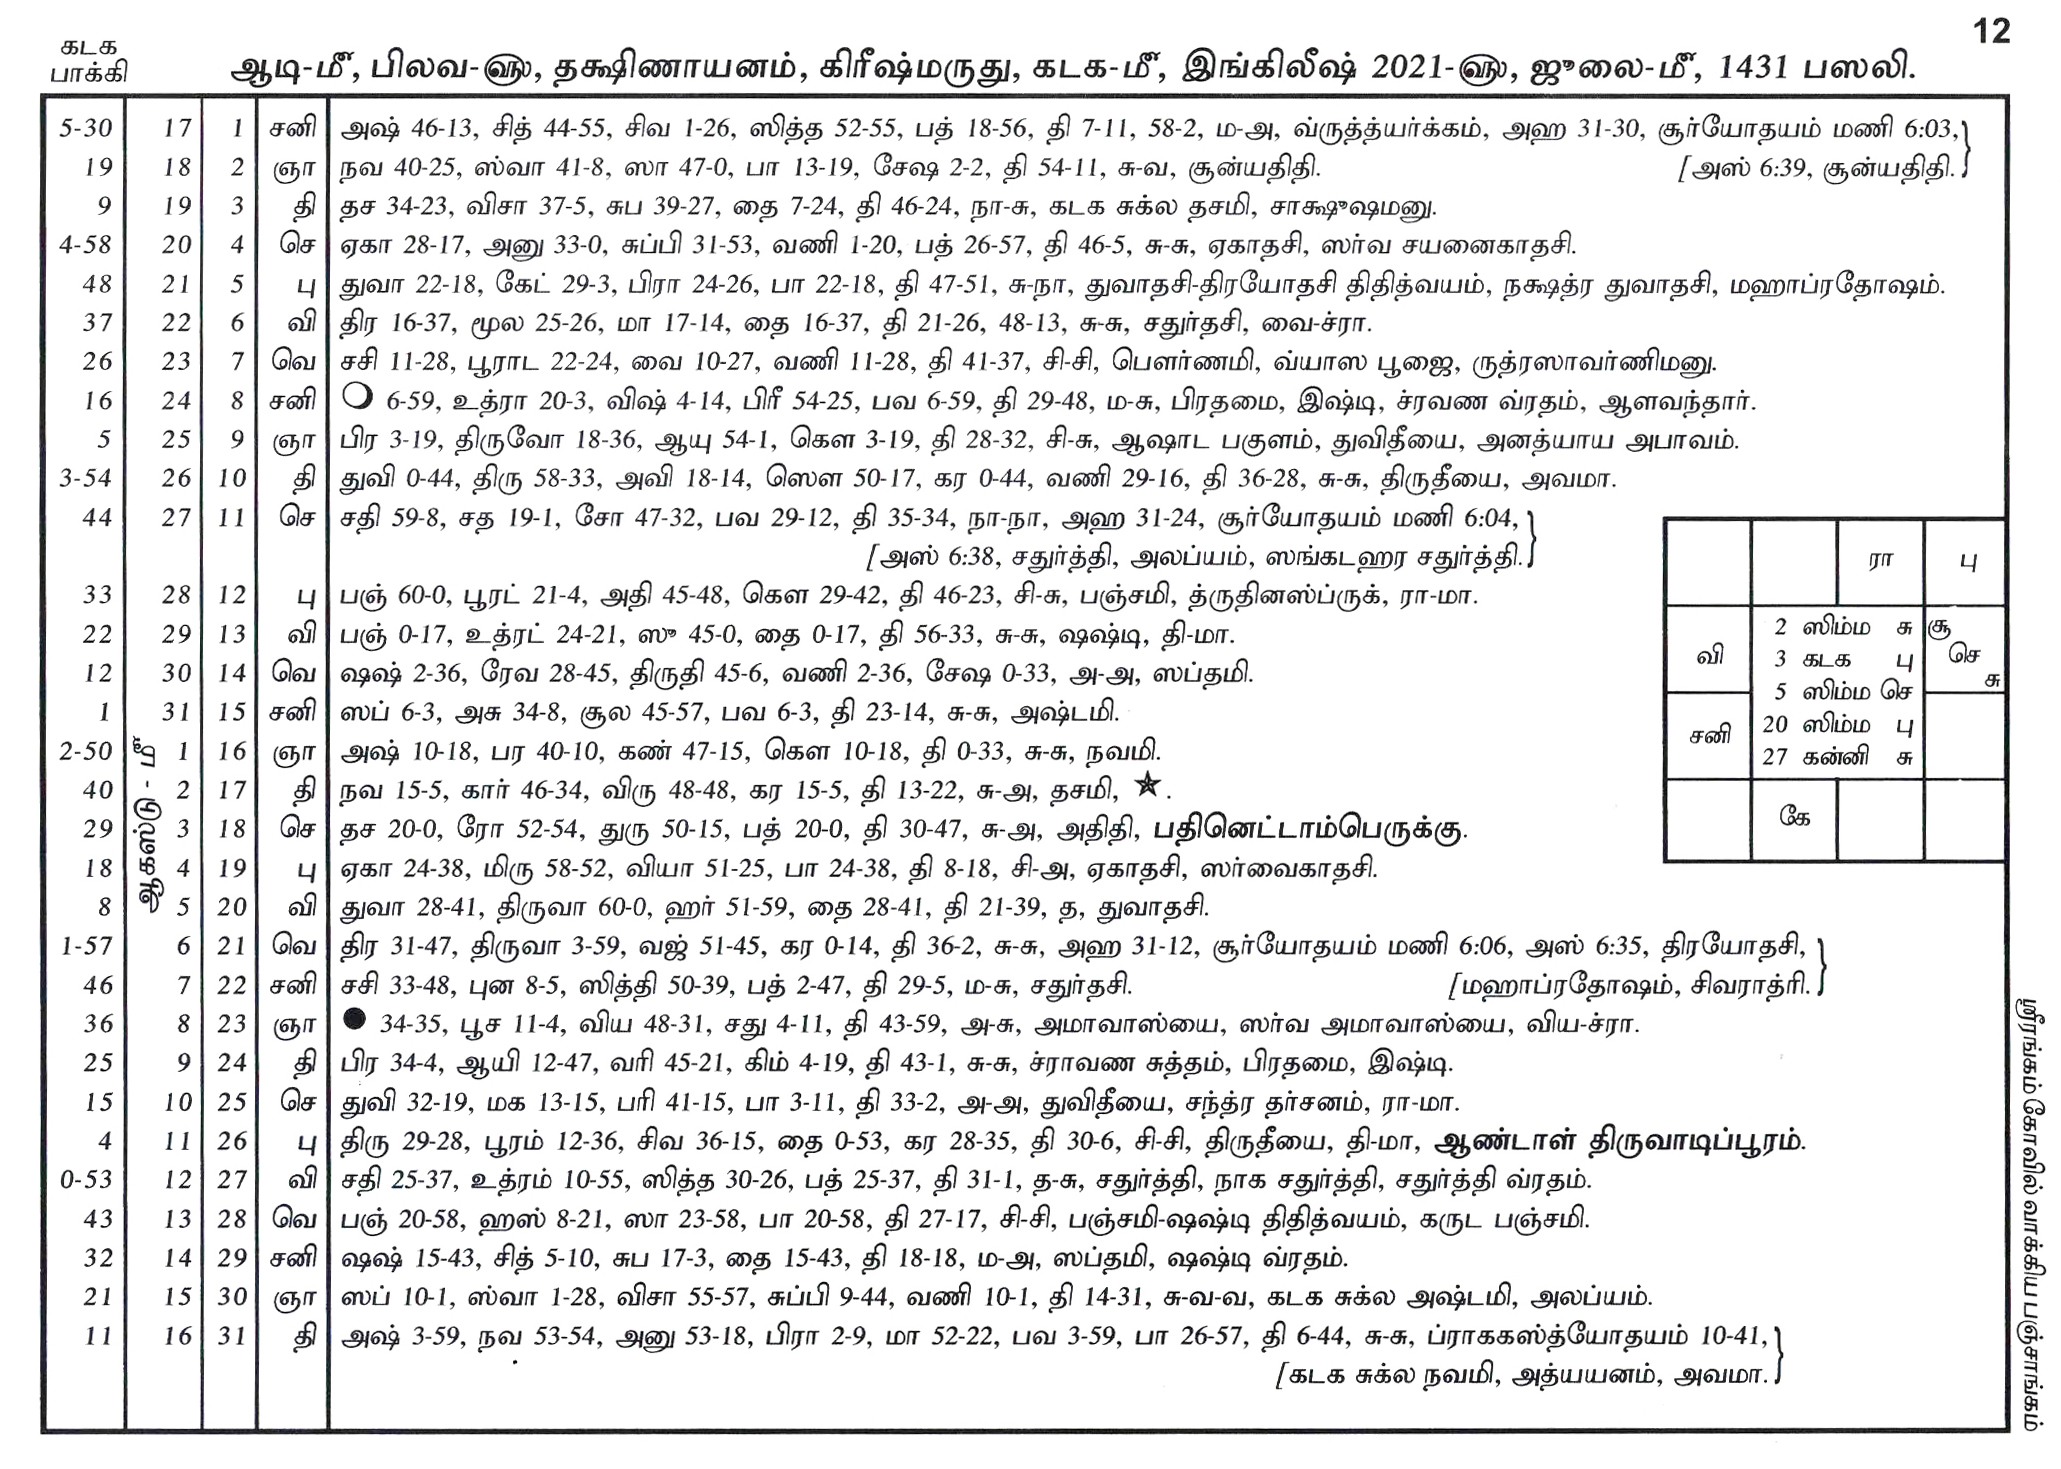 12
கடக
பாக்கி
ஆடி-மீ, பிலவ-௵, தக்ஷிணாயனம், கிரீஷ்மருது, கடக-மீ, இங்கிலீஷ் 2021-௵, ஜுலை-மீ, 1431 பஸலி.
5-30 17 1 சனி அஷ் 46-13, சித் 44-55, சிவ 1-26, ஸித்த 52-55, பத் 18-56, தி 7-11, 58-2, ம-அ, வ்ருத்த்யர்க்கம், அஹ 31-30, சூர்யோதயம் மணி 6:03,
19 18 2 ஞா நவ 40-25, ஸ்வா 41-8, ஸா 47-0, பா 13-19, சேஷ 2-2, தி 54-11, சு-வ, சூன்யதிதி. [அஸ் 6:39, சூன்யதிதி.
9 19 3 தி தச 34-23, விசா 37-5, சுப 39-27, தை 7-24, தி 46-24, நா-சு, கடக சுக்ல தசமி, சாக்ஷுஷமனு.
4-58 20 4 செ ஏகா 28-17, அனு 33-0, சுப்பி 31-53, வணி 1-20, பத் 26-57, தி 46-5, சு-சு, ஏகாதசி, ஸர்வ சயனைகாதசி.
48 21 5 பு துவா 22-18, கேட் 29-3, பிரா 24-26, பா 22-18, தி 47-51, சு-நா, துவாதசி-திரயோதசி திதித்வயம், நக்ஷத்ர துவாதசி, மஹாப்ரதோஷம்.
37 22 6 வி திர 16-37, மூல 25-26, மா 17-14, தை 16-37, தி 21-26, 48-13, சு-சு, சதுர்தசி, வை-ச்ரா.
26 23 7 வெ சசி 11-28, பூராட 22-24, வை 10-27, வணி 11-28, தி 41-37, சி-சி, பௌர்ணமி, வ்யாஸ பூஜை, ருத்ரஸாவர்ணிமனு.
16 24 8 சனி ○ 6-59, உத்ரா 20-3, விஷ் 4-14, பிரீ 54-25, பவ 6-59, தி 29-48, ம-சு, பிரதமை, இஷ்டி, ச்ரவண வ்ரதம், ஆளவந்தார்.
5 25 9 ஞா பிர 3-19, திருவோ 18-36, ஆயு 54-1, கௌ 3-19, தி 28-32, சி-சு, ஆஷாட பகுளம், துவிதீயை, அனத்யாய அபாவம்.
3-54 26 10 தி துவி 0-44, திரு 58-33, அவி 18-14, ஸௌ 50-17, கர 0-44, வணி 29-16, தி 36-28, சு-சு, திருதீயை, அவமா.
44 27 11 செ சதி 59-8, சத 19-1, சோ 47-32, பவ 29-12, தி 35-34, நா-நா, அஹ 31-24, சூர்யோதயம் மணி 6:04,
[அஸ் 6:38, சதுர்த்தி, அலப்யம், ஸங்கடஹர சதுர்த்தி.
33 28 12 பு பஞ் 60-0, பூரட் 21-4, அதி 45-48, கௌ 29-42, தி 46-23, சி-சு, பஞ்சமி, த்ருதினஸ்ப்ருக், ரா-மா.
22 29 13 வி பஞ் 0-17, உத்ரட் 24-21, ஸு 45-0, தை 0-17, தி 56-33, சு-சு, ஷஷ்டி, தி-மா.
12 30 14 வெ ஷஷ் 2-36, ரேவ 28-45, திருதி 45-6, வணி 2-36, சேஷ 0-33, அ-அ, ஸப்தமி.
1 31 15 சனி ஸப் 6-3, அசு 34-8, சூல 45-57, பவ 6-3, தி 23-14, சு-சு, அஷ்டமி.
ஆகஸ்டு - மீ
2-50 1 16 ஞா அஷ் 10-18, பர 40-10, கண் 47-15, கௌ 10-18, தி 0-33, சு-சு, நவமி.
40 2 17 தி நவ 15-5, கார் 46-34, விரு 48-48, கர 15-5, தி 13-22, சு-அ, தசமி, ★.
29 3 18 செ தச 20-0, ரோ 52-54, துரு 50-15, பத் 20-0, தி 30-47, சு-அ, அதிதி, பதினெட்டாம்பெருக்கு.
18 4 19 பு ஏகா 24-38, மிரு 58-52, வியா 51-25, பா 24-38, தி 8-18, சி-அ, ஏகாதசி, ஸர்வைகாதசி.
8 5 20 வி துவா 28-41, திருவா 60-0, ஹர் 51-59, தை 28-41, தி 21-39, த, துவாதசி.
1-57 6 21 வெ திர 31-47, திருவா 3-59, வஜ் 51-45, கர 0-14, தி 36-2, சு-சு, அஹ 31-12, சூர்யோதயம் மணி 6:06, அஸ் 6:35, திரயோதசி,
46 7 22 சனி சசி 33-48, புன 8-5, ஸித்தி 50-39, பத் 2-47, தி 29-5, ம-சு, சதுர்தசி. [மஹாப்ரதோஷம், சிவராத்ரி.
36 8 23 ஞா ● 34-35, பூச 11-4, விய 48-31, சது 4-11, தி 43-59, அ-சு, அமாவாஸ்யை, ஸர்வ அமாவாஸ்யை, விய-ச்ரா.
25 9 24 தி பிர 34-4, ஆயி 12-47, வரி 45-21, கிம் 4-19, தி 43-1, சு-சு, ச்ராவண சுத்தம், பிரதமை, இஷ்டி.
15 10 25 செ துவி 32-19, மக 13-15, பரி 41-15, பா 3-11, தி 33-2, அ-அ, துவிதீயை, சந்த்ர தர்சனம், ரா-மா.
4 11 26 பு திரு 29-28, பூரம் 12-36, சிவ 36-15, தை 0-53, கர 28-35, தி 30-6, சி-சி, திருதீயை, தி-மா, ஆண்டாள் திருவாடிப்பூரம்.
0-53 12 27 வி சதி 25-37, உத்ரம் 10-55, ஸித்த 30-26, பத் 25-37, தி 31-1, த-சு, சதுர்த்தி, நாக சதுர்த்தி, சதுர்த்தி வ்ரதம்.
43 13 28 வெ பஞ் 20-58, ஹஸ் 8-21, ஸா 23-58, பா 20-58, தி 27-17, சி-சி, பஞ்சமி-ஷஷ்டி திதித்வயம், கருட பஞ்சமி.
32 14 29 சனி ஷஷ் 15-43, சித் 5-10, சுப 17-3, தை 15-43, தி 18-18, ம-அ, ஸப்தமி, ஷஷ்டி வ்ரதம்.
21 15 30 ஞா ஸப் 10-1, ஸ்வா 1-28, விசா 55-57, சுப்பி 9-44, வணி 10-1, தி 14-31, சு-வ-வ, கடக சுக்ல அஷ்டமி, அலப்யம்.
11 16 31 தி அஷ் 3-59, நவ 53-54, அனு 53-18, பிரா 2-9, மா 52-22, பவ 3-59, பா 26-57, தி 6-44, சு-சு, ப்ராககஸ்த்யோதயம் 10-41,
[கடக சுக்ல நவமி, அத்யயனம், அவமா.
ரா பு
வி
2 ஸிம்ம சு
3 கடக பு
5 ஸிம்ம செ
20 ஸிம்ம பு
27 கன்னி சு
சூ
செ
சு
சனி
கே
ஸ்ரீரங்கம் கோவில் வாக்கிய பஞ்சாங்கம்